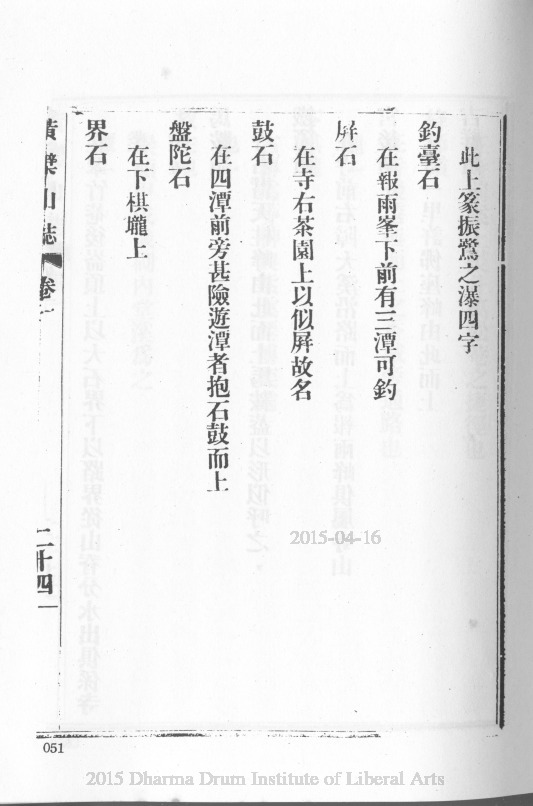 此上篆振鷺之瀑四字
釣臺石
在報雨峯下前有三潭可釣
屏石
在寺右茶園上以似屏故名
鼓石
在四潭前旁甚險遊潭者抱石鼓而上
盤陀石
在下棋壠上
界石
黃檗山誌 卷一 二十四
051
2015-04-16
2015 Dharma Drum Institute of Liberal Arts